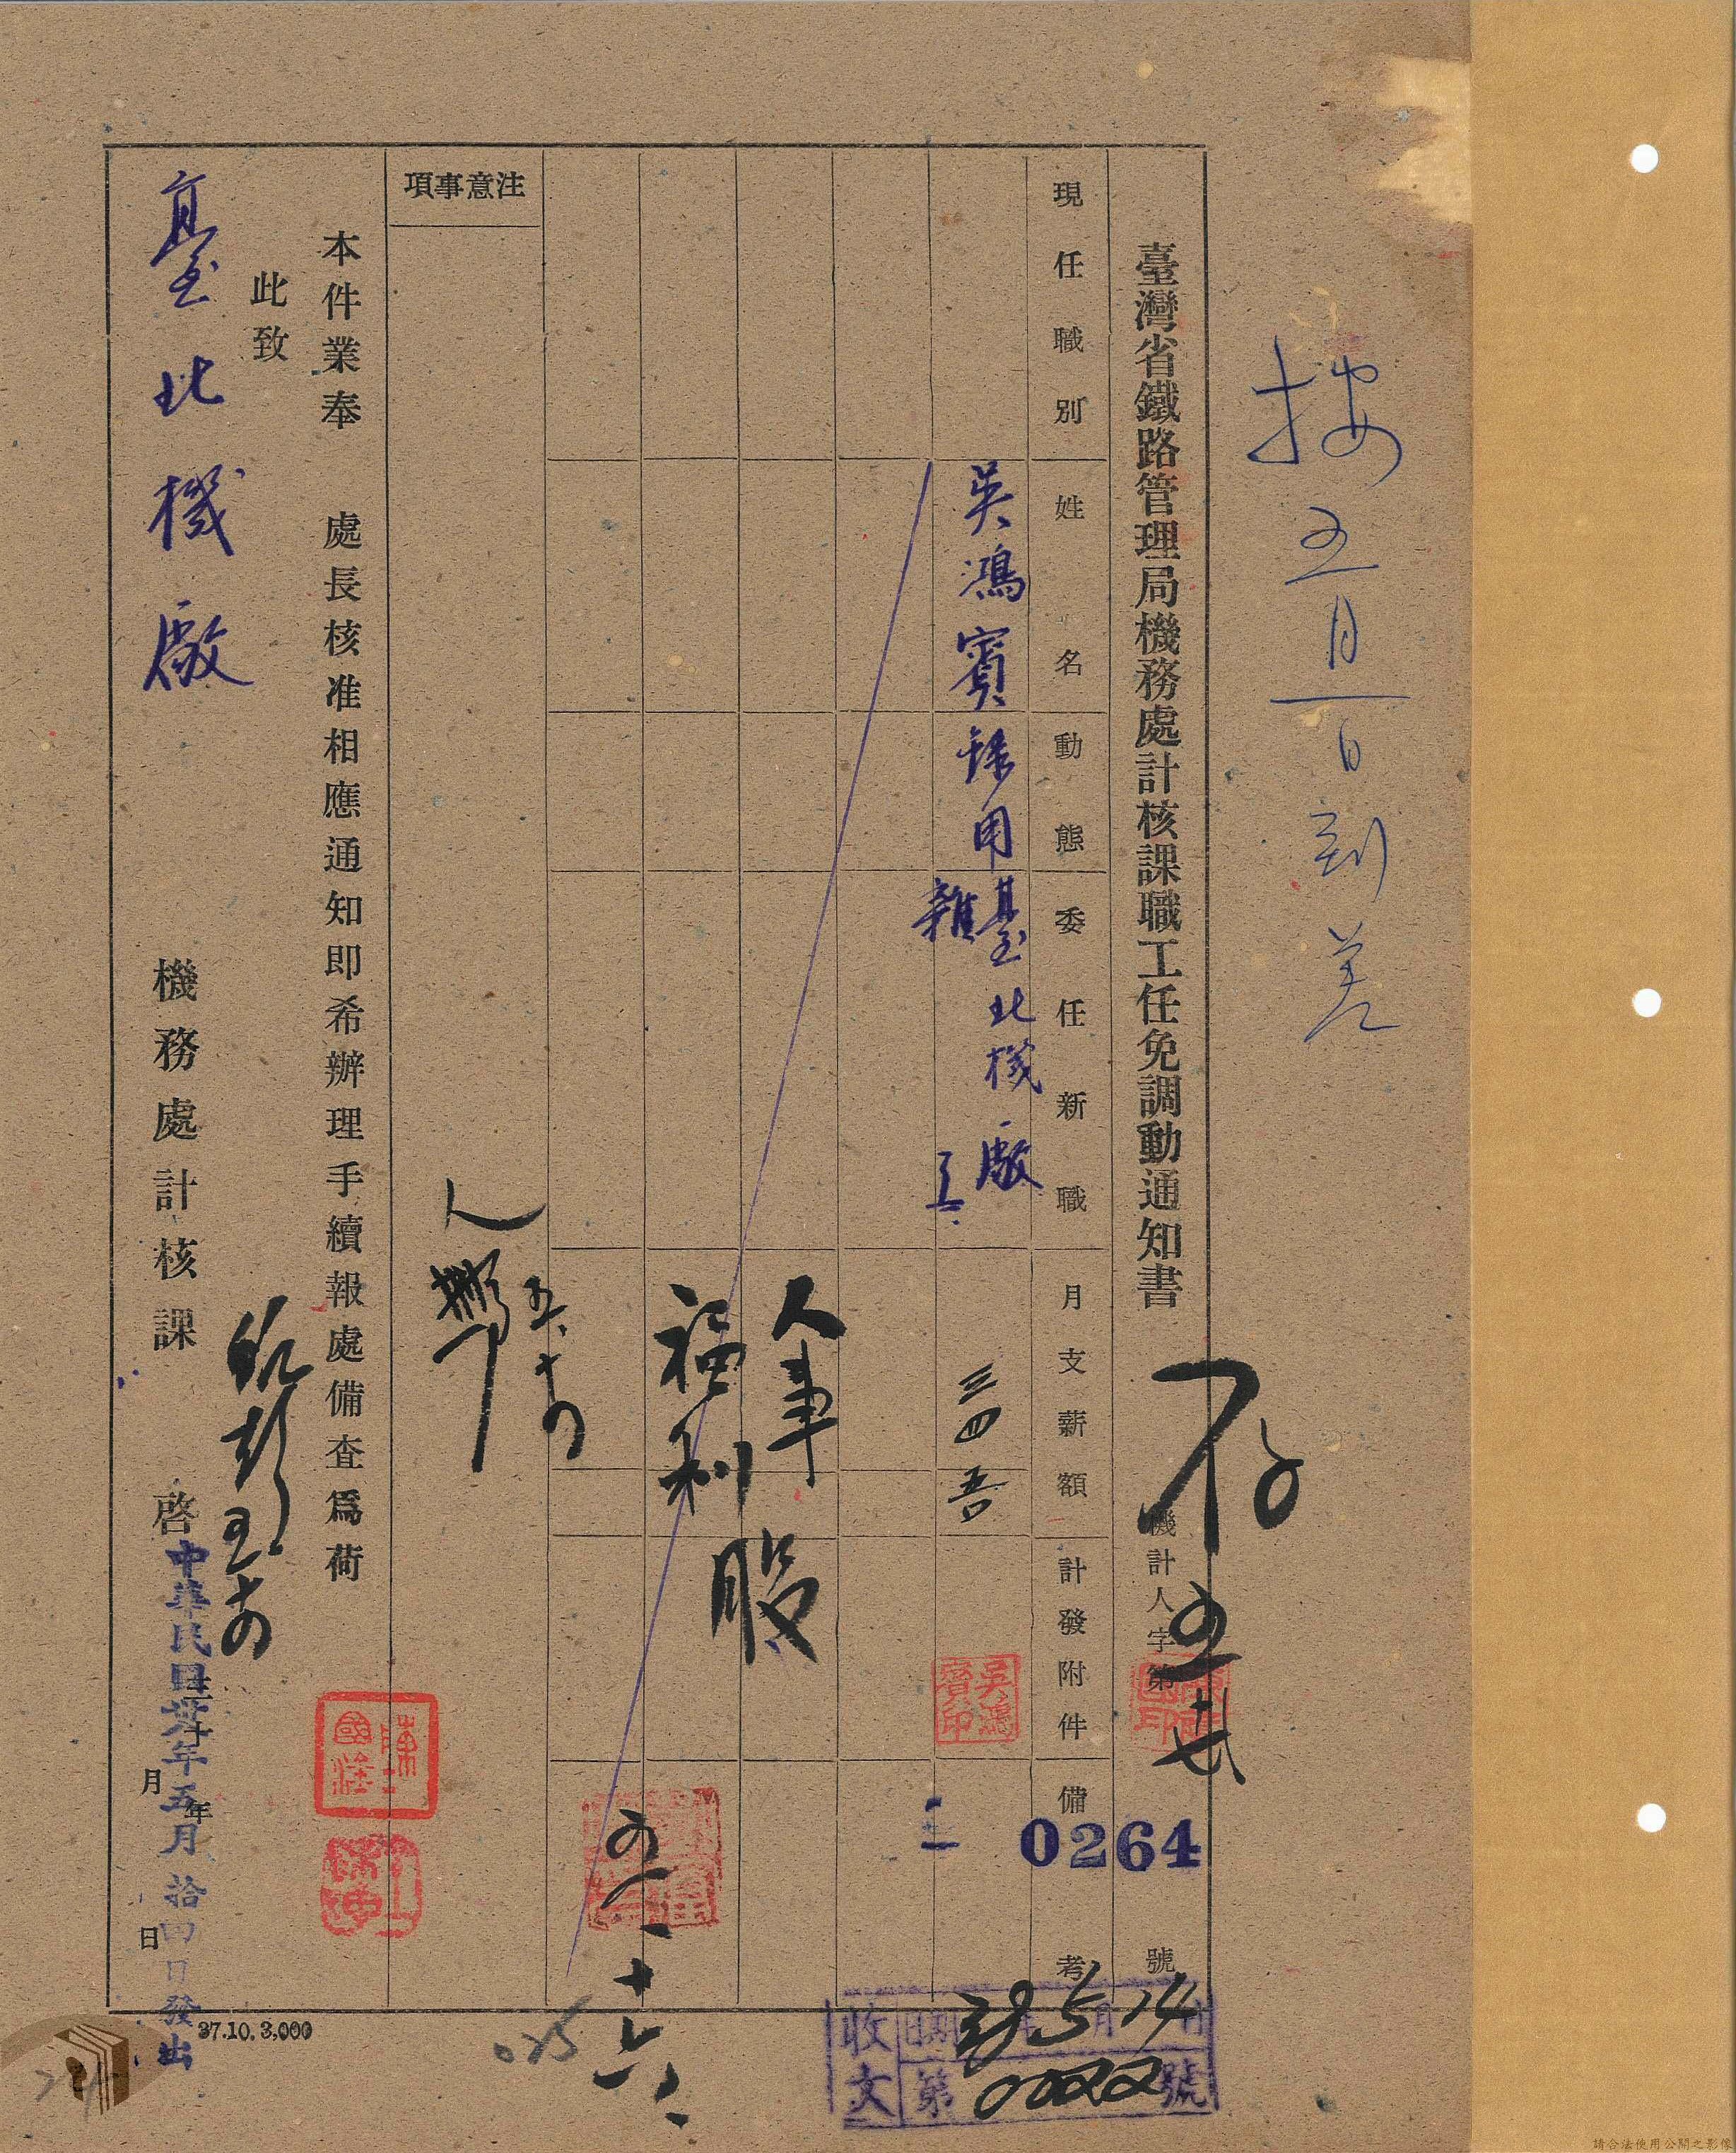 按五月一日到差
臺灣省鐵路管理局機務處計核課職工任免調動通知書
機計人字第 0264 號
存
現任職別
姓名
動態
委任新職
月支薪額
計發附件
備考
吳鴻賓
錄用
臺北機廠
雜工
三四
吳鴻賓印
人事
福利
股
五、十六、
注意事項
本件業奉 處長核准相應通知即希辦理手續報處備查為荷
此致
臺北機廠
機務處計核課 啓
年 月 日
中華民國卅九年五月拾四日發出
收文
日期 39 年 5 月 14 日
第 0022 號
37.10.3,000
025
請合法使用公開之影像